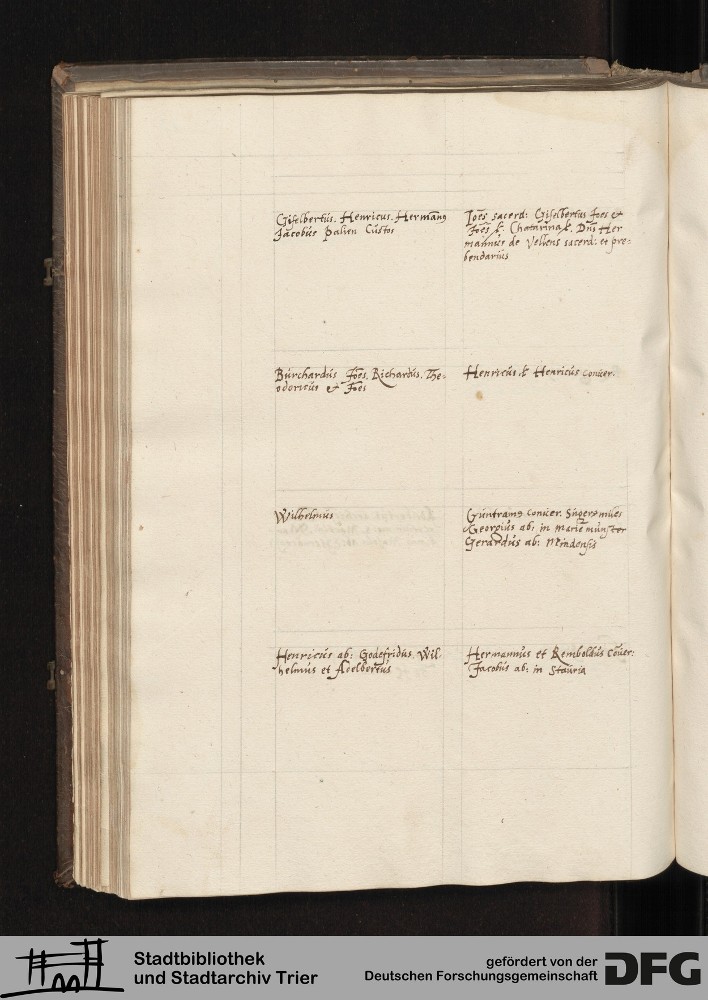 Giselbertus. Henricus. Hermanꝯ
Jacobus palien Custos
Joes̄ sacerd: Gisselbertus Joes et
Joēs k. Chatarina k. Dn̄s Her
mannus de Vellens sacerd: et pre:
bendarius
Burchardus Joēs. Richardus. The:
odoricus et Joēs
Henricus. k Henricus conuer.
Wilhelmus
Guntramꝯ conuer. miles
Georgius ab: in Mariē munster
Gerardus ab: Mindensis
Henricus ab: Godefridus. Wil
helmus et Adelbertus
Hermannus et Remboldus Cōuer:
Jacobus ab: in Stauria
Stadtbibliothek
und Stadtarchiv Trier
gefördert von der
Deutschen Forschungsgemeinschaft
DFG